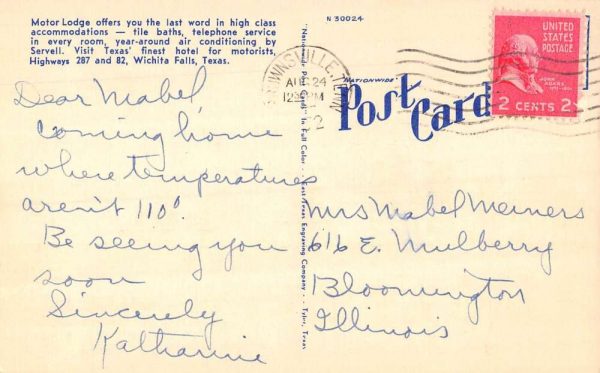 Motor Lodge offers you the last word in high class
accommodations — tile baths, telephone service
in every room, year-around air conditioning by
Servell. Visit Texas' finest hotel for motorists,
Highways 287 and 82, Wichita Falls, Texas.
N 30024
BROWNSVILLE, TENN
AUG 24
12 PM
UNITED STATES
POSTAGE
JOHN
ADAMS
2 CENTS 2
"NATIONWIDE"
Post Card
"Nationwide Post Card" In Full Color — East Texas Engraving Company — Tyler, Texas
Dear Mabel,
Coming home
where temperatures
aren't 110°.
Be seeing you
soon
Sincerely
Katharine
Mrs Mabel Meiners
616 E. Mulberry
Bloomington
Illinois